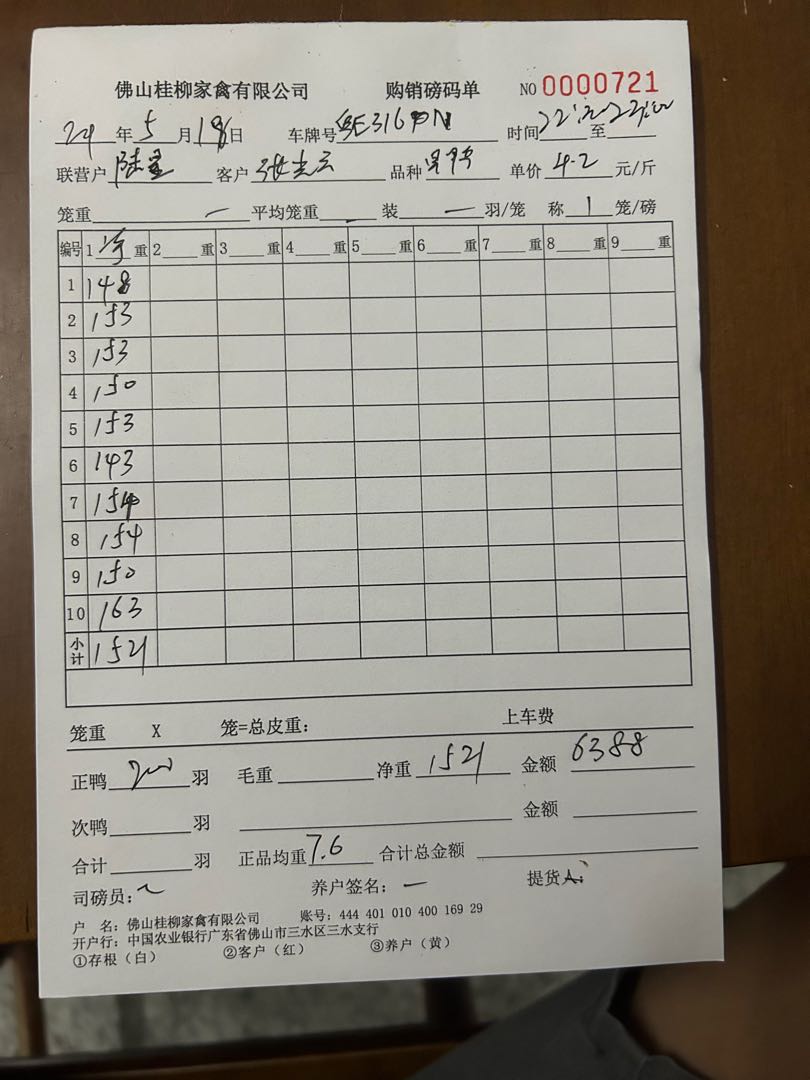 佛山桂柳家禽有限公司 购销磅码单 NO 0000721
24 年 5 月 18 日 车牌号 至 时间
联营户 客户 品种 单价 4.2 元/斤
笼重 — 平均笼重 — 装 — 羽/笼 称 1 笼/磅
编号 1 净 重 2 重 3 重 4 重 5 重 6 重 7 重 8 重 9 重
1 148
2 153
3 153
4 150
5 153
6 143
7 154
8 154
9 150
10 163
小计 1521
笼重 X 笼=总皮重: 上车费
正鸭 200 羽 毛重 净重 1521 金额 6388
次鸭 羽 金额
合计 羽 正品均重 7.6 合计总金额
司磅员: 养户签名: — 提货人:
户 名: 佛山桂柳家禽有限公司 账号: 444 401 010 400 169 29
开户行: 中国农业银行广东省佛山市三水区三水支行
①存根(白) ②客户(红) ③养户(黄)